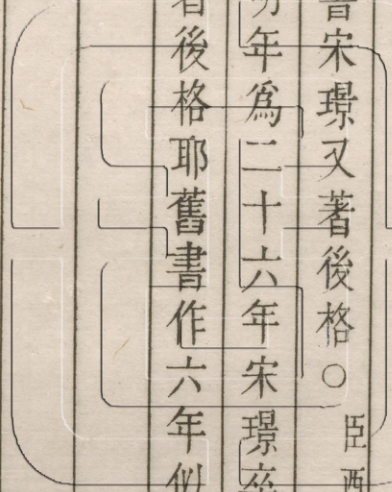 宋璟又著後格○臣酉
年爲二十六年宋璟卒
者後格耶舊書作六年似